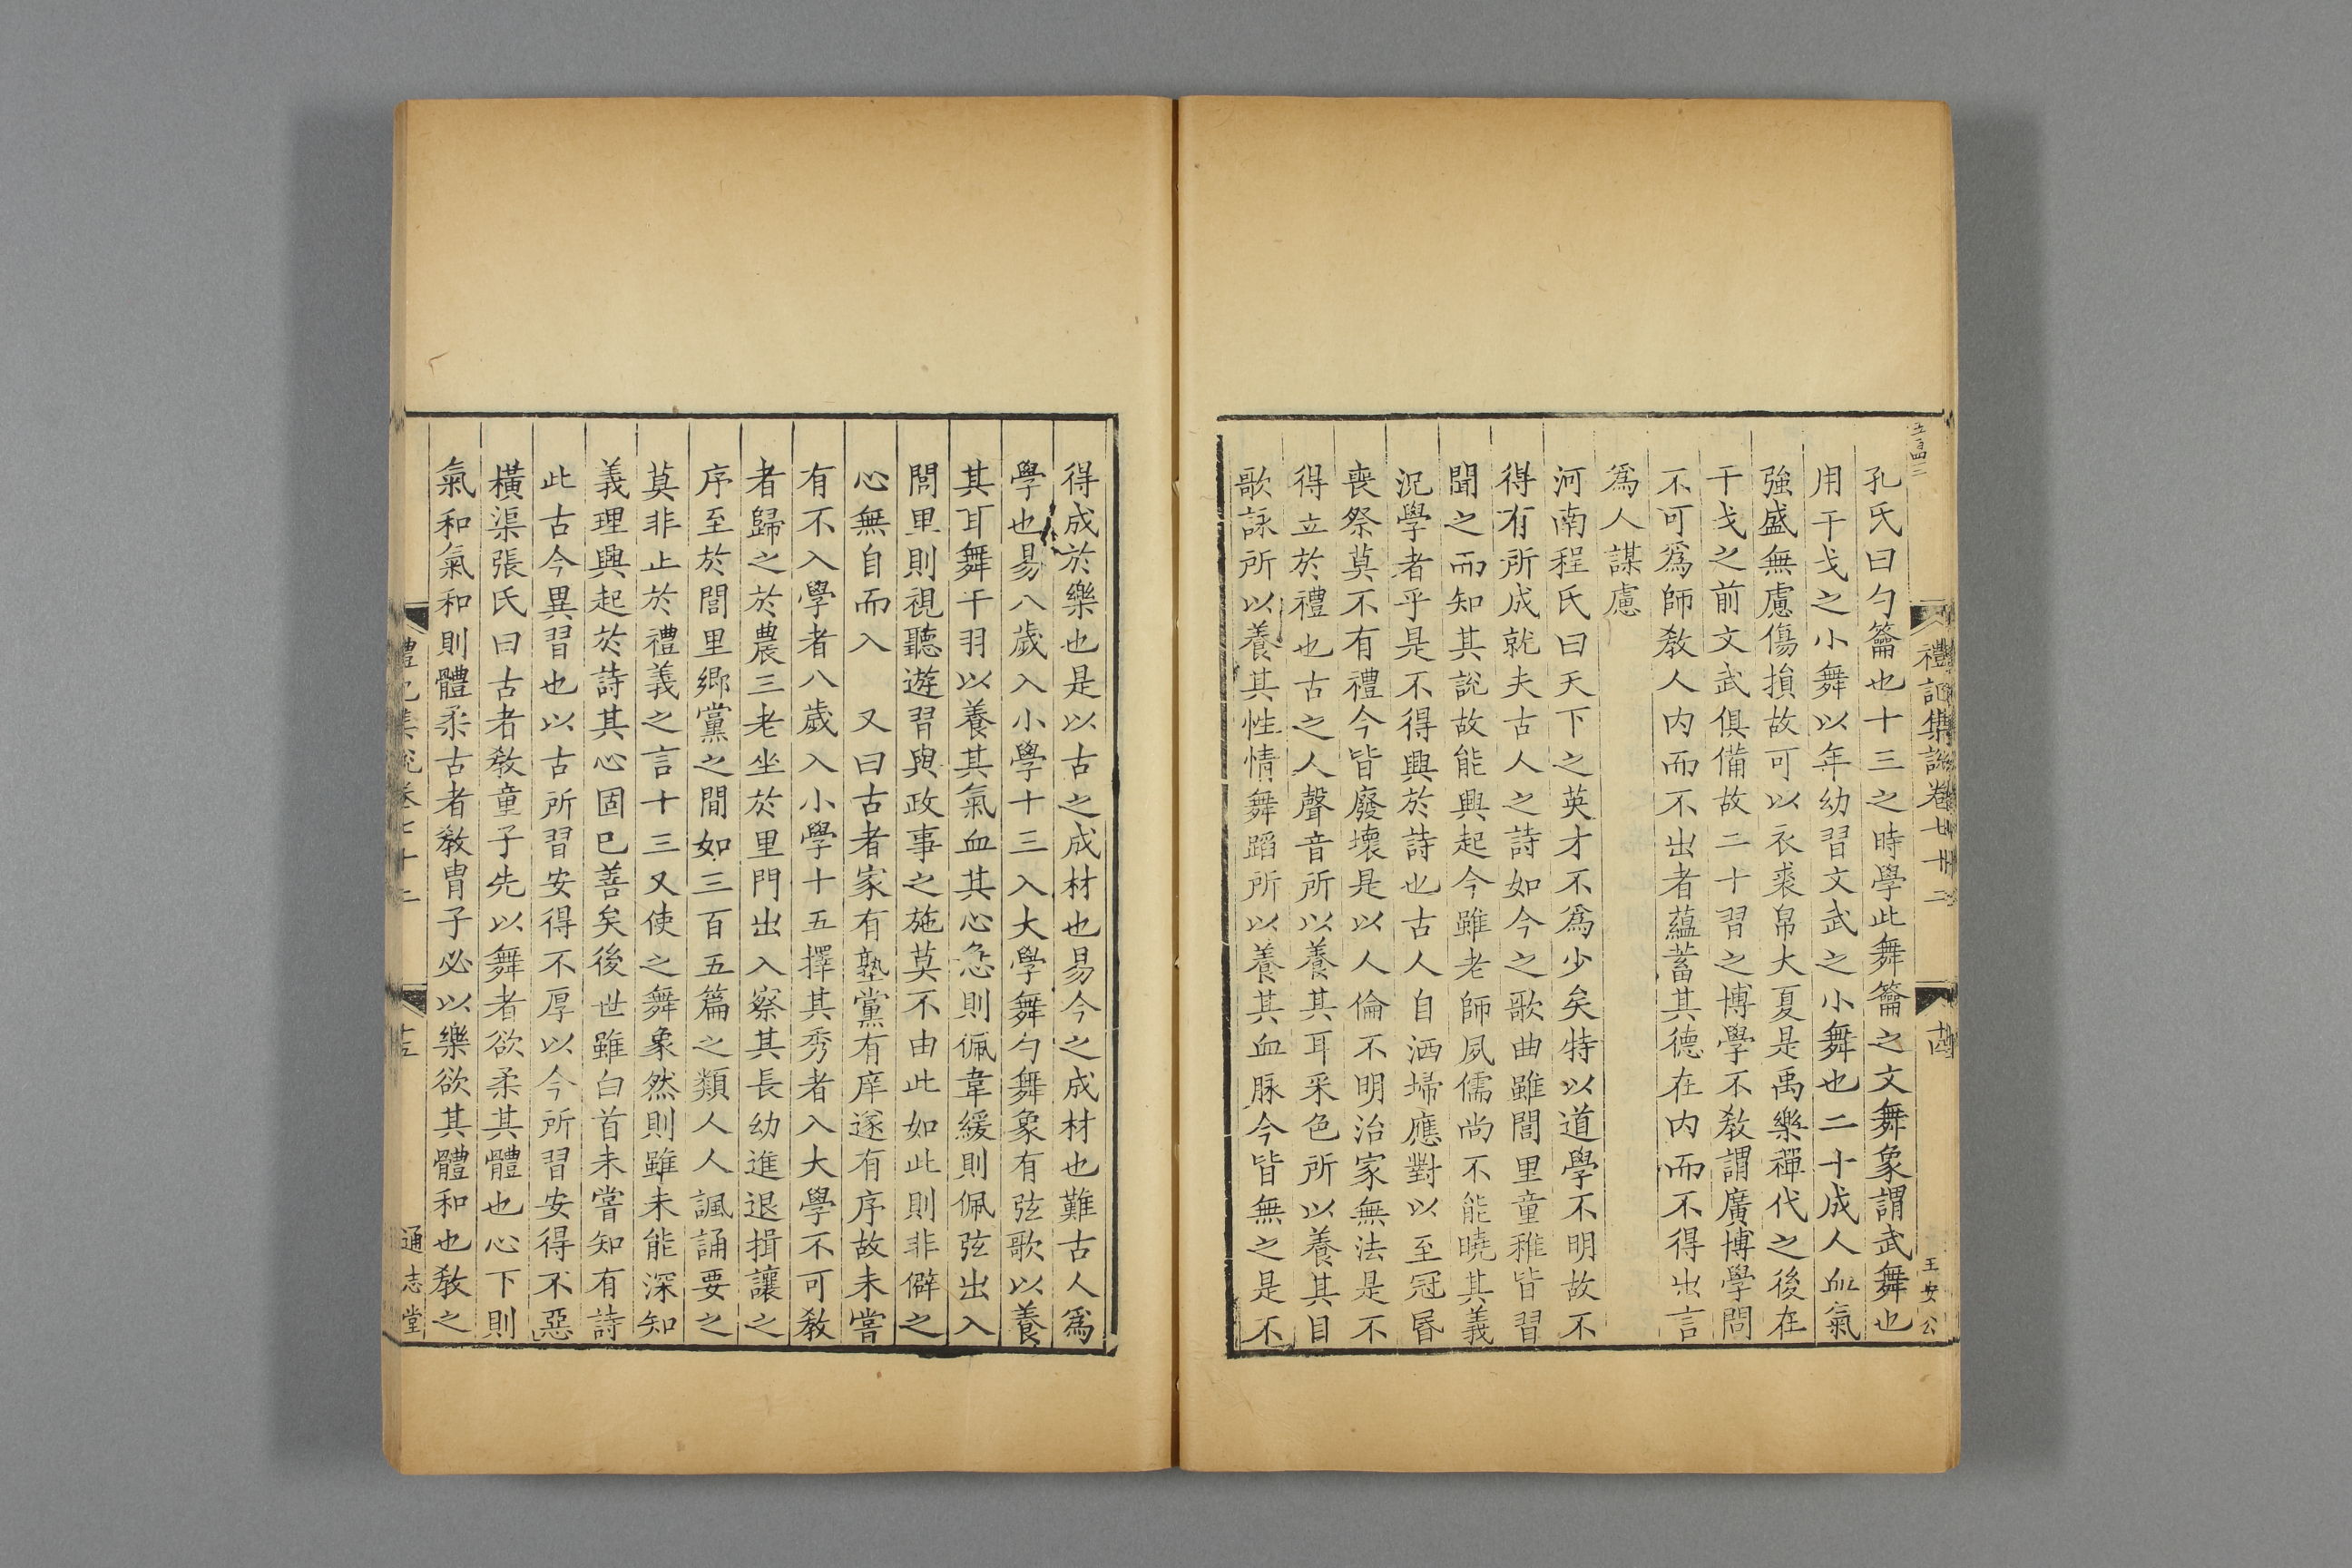 禮記集說卷七十二
十四
王安公
孔氏曰勺籥也十三之時學此舞籥之文舞象謂武舞也
用干戈之小舞以年幼習文武之小舞也二十成人血氣
強盛無慮傷損故可以衣裘帛大夏是禹樂禪代之後在
干戈之前文武俱備故二十習之博學不敎謂廣博學問
不可爲師敎人內而不出者蘊蓄其德在內而不得出言
爲人謀慮
河南程氏曰天下之英才不爲少矣特以道學不明故不
得有所成就夫古人之詩如今之歌曲雖閭里童稚皆習
聞之而知其說故能興起今雖老師夙儒尚不能曉其義
況學者乎是不得興於詩也古人自洒埽應對以至冠昏
喪祭莫不有禮今皆廢壞是以人倫不明治家無法是不
得立於禮也古之人聲音所以養其耳采色所以養其目
歌詠所以養其性情舞蹈所以養其血脉今皆無之是不
得成於樂也是以古之成材也易今之成材也難古人爲
學也易八歲入小學十三入大學舞勺舞象有弦歌以養
其耳舞干羽以養其氣血其心急則佩韋緩則佩弦出入
閭里則視聽遊習與政事之施莫不由此如此則非僻之
心無自而入　又曰古者家有塾黨有庠遂有序故未嘗
有不入學者八歲入小學十五擇其秀者入大學不可敎
者歸之於農三老坐於里門出入察其長幼進退揖讓之
序至於閭里鄉黨之間如三百五篇之類人人諷誦要之
莫非止於禮義之言十三又使之舞象然則雖未能深知
義理興起於詩其心固已善矣後世雖白首未嘗知有詩
此古今異習也以古所習安得不厚以今所習安得不惡
橫渠張氏曰古者敎童子先以舞者欲柔其體也心下則
氣和氣和則體柔古者敎胄子必以樂欲其體和也敎之
禮記集說卷七十二
十五
通志堂